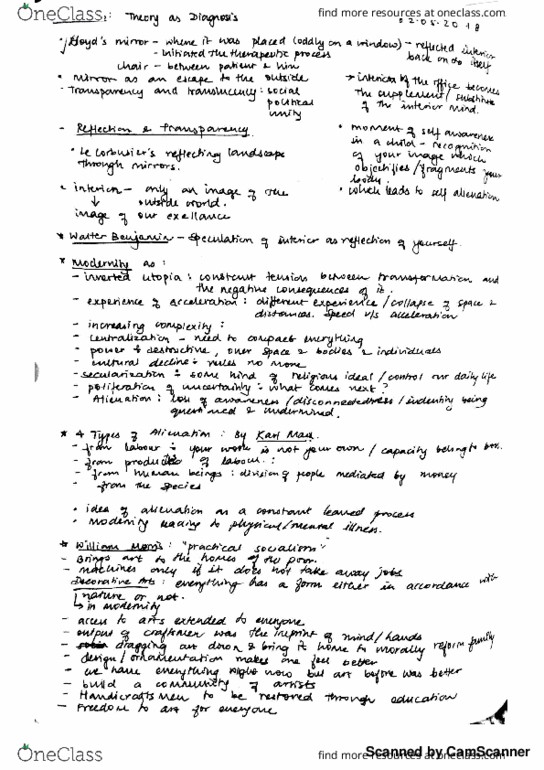 OneClass
find more resources at oneclass.com
Theory as Diagnosis
02.05.2018
• Floyd's mirror - where it was placed (oddly on a window) - reflected interior back on to itself
- initiated the therapeutic process
chair - between patient & him
• mirror as an escape to the outside
- Transparency and translucency : social
political
unity
→ interior of the office becomes the supplement / substitute of the interior mind.
- Reflection & Transparency
• Le Corbusier's reflecting landscape through mirrors.
• moment of self awareness in a child - recognition of your image which objectifies / fragments your body.
• which leads to self alienation
• interior - only an image of the outside world.
↓
image of our excellance
* Walter Benjamin - speculation of interior as reflection of yourself.
* Modernity as :
- inverted utopia : constant tension between transformation and the negative consequences of it.
- experience of acceleration : different experience / collapse of space & distances. Speed v/s acceleration
- increasing complexity :
- centralization - need to compact everything
- power & destructive, over space & bodies & individuals
- cultural decline : rules no more
- secularization : some kind of religious ideal / control our daily life
- poliferation of uncertainity : what comes next ?
- Alienation : loss of awareness / disconnectedness / indentity being questioned & undermined.
* 4 Types of Alienation : By Karl Marx.
- from labour : your work is not your own / capacity belong to
- from production of labour. :
- from human beings : division of people mediated by money
- from the species
• idea of alienation as a constant learned process
• modernity leading to physical / mental illness.
* William Morris : "practical socialism"
- Brings art to the homes of the poor.
- machines only if it does not take away jobs
Decorative Arts : everything has a form either in accordance with nature or not.
↳ in modernity
- access to arts extended to everyone
- output of craftmen was the imprint of mind / hands
- dragging art down & bring it home to morally reform family
- design / ornamentation makes one feel better
- we have everything right now but art before was better
- build a community of artists
- Handicraftsmen to be restored through education
- Freedom to art for everyone
OneClass
find more resources at oneclass.com
Scanned by CamScanner